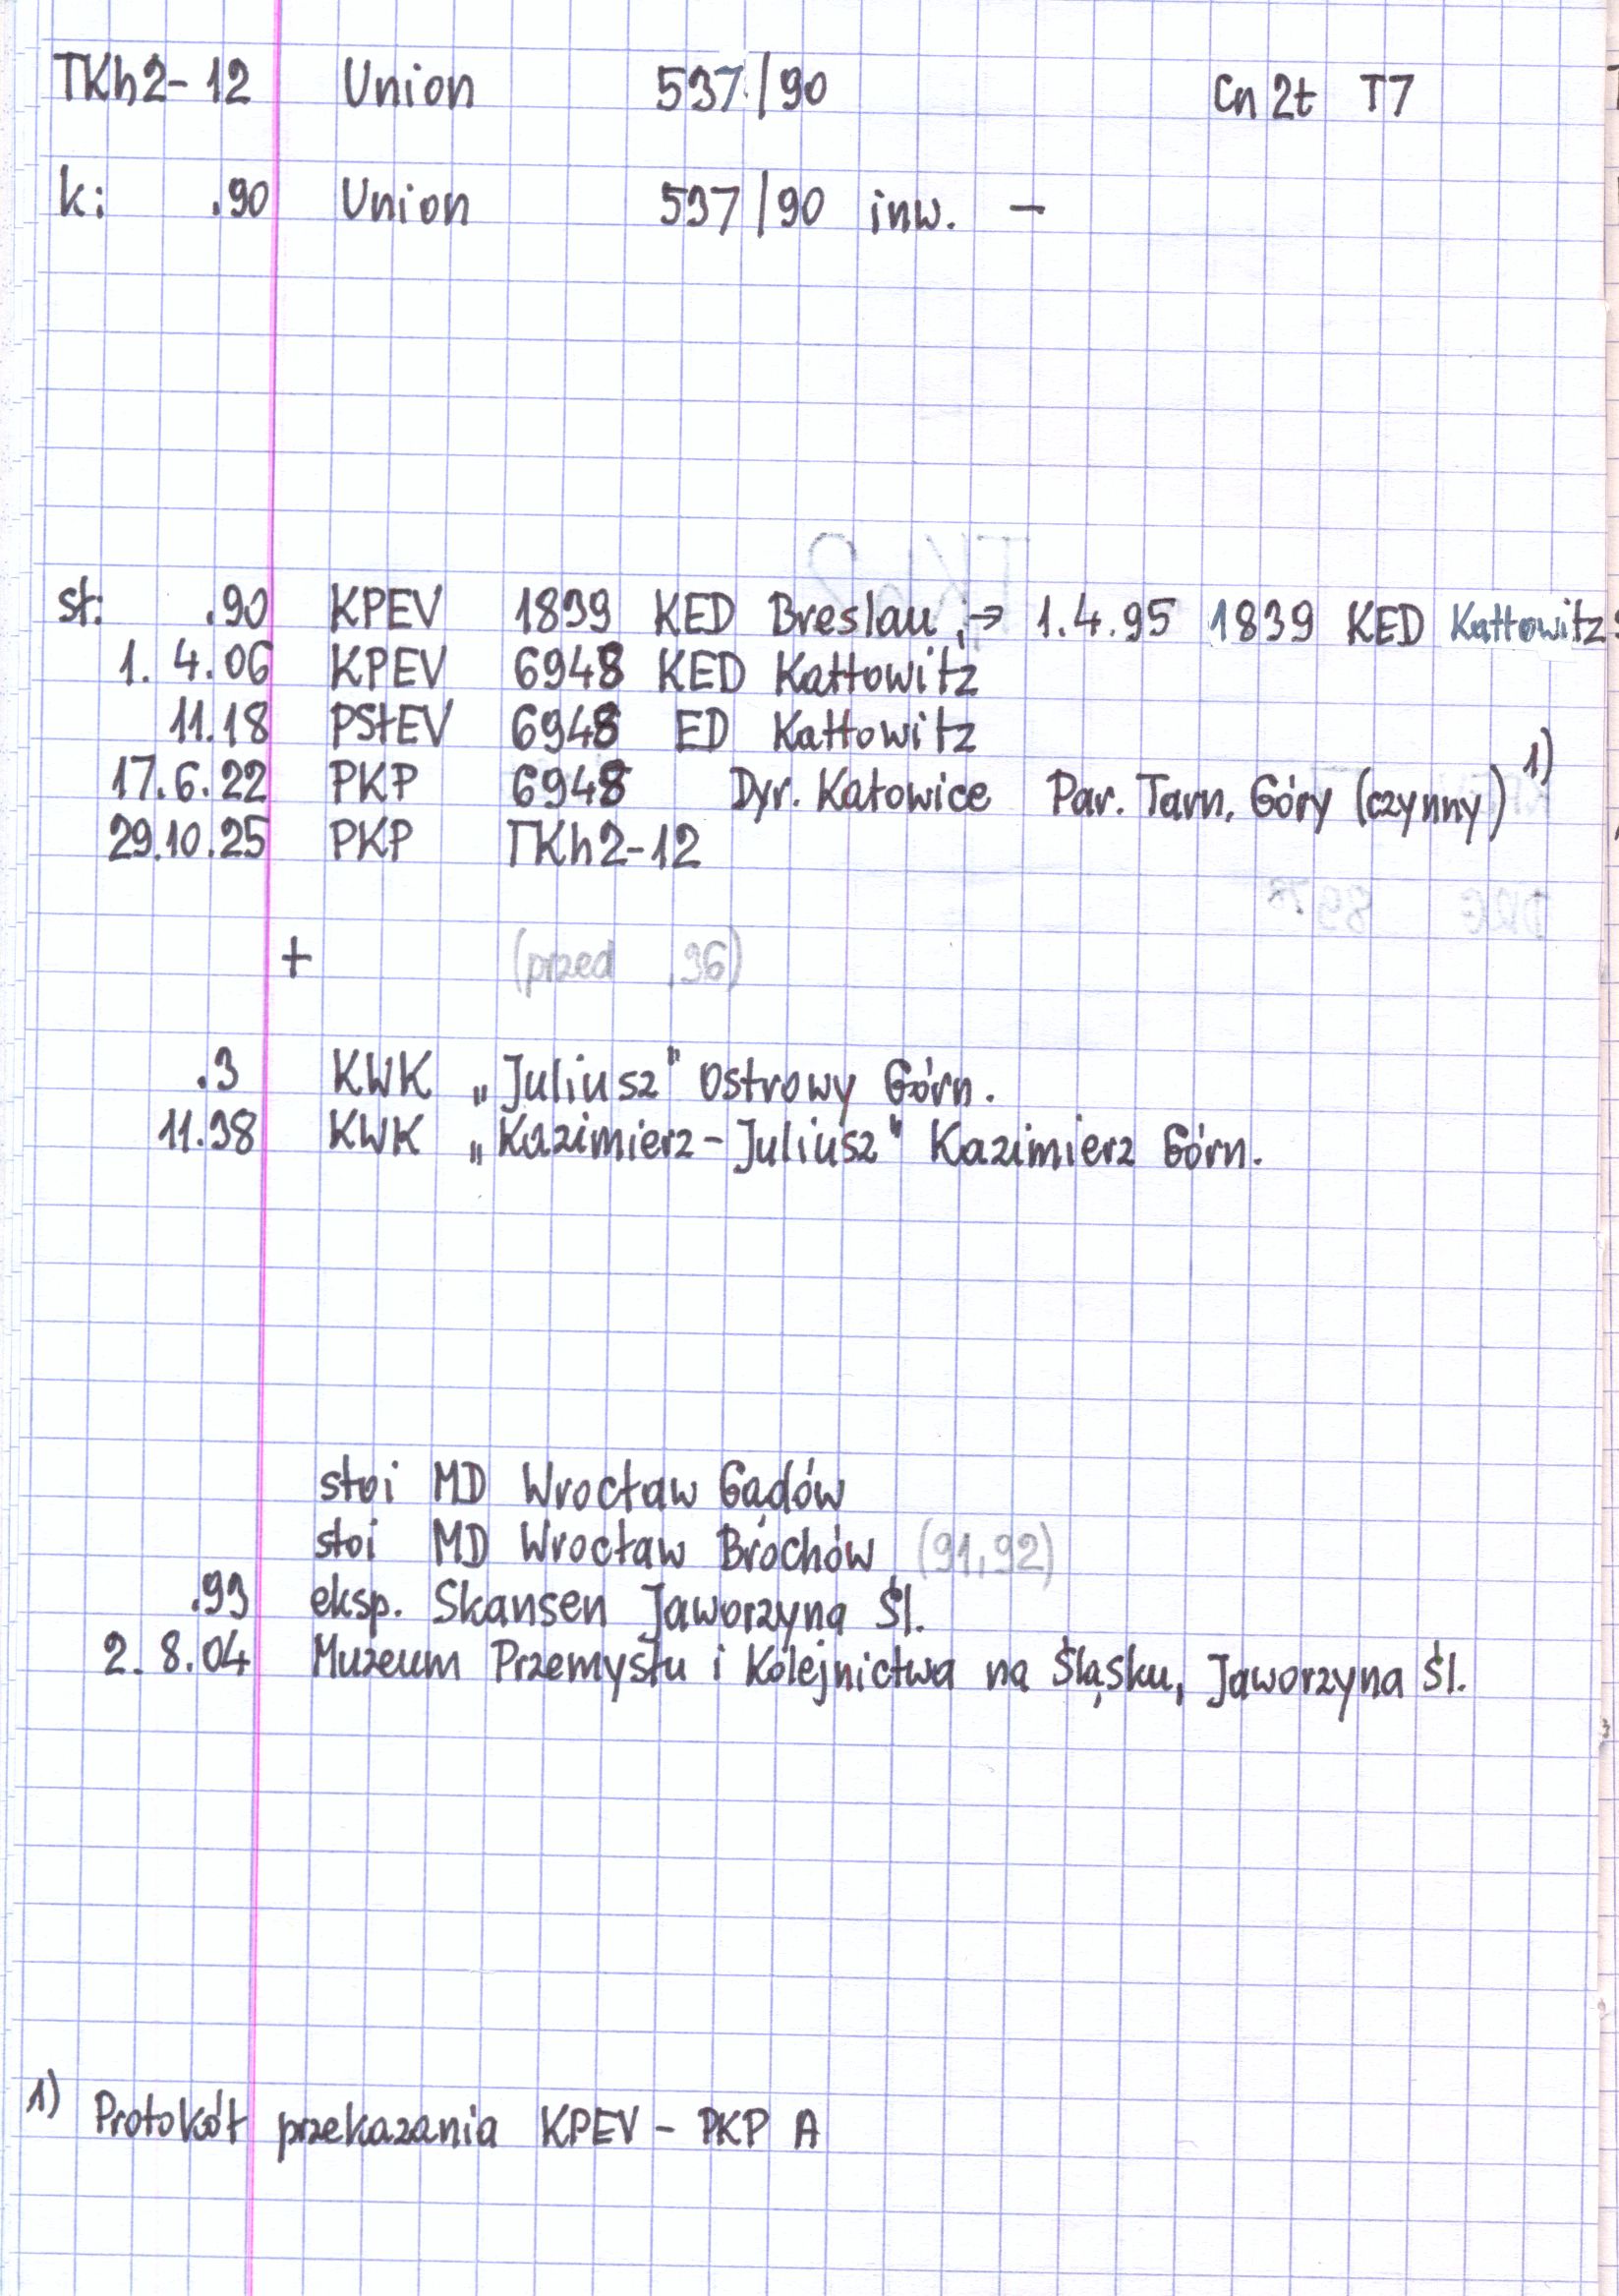 TKh2-12 Union 537/90 Cn2t T7
k: .90 Union 537/90 inw. –
st: .90 KPEV 1839 KED Breslau ;→ 1.4.95 1839 KED Kattowitz
1. 4.06 KPEV 6948 KED Kattowitz
11.18 PStEV 6948 ED Kattowitz
17.6.22 PKP 6948 Dyr. Katowice Par. Tarn. Góry (czynny) 1)
29.10.25 PKP TKh2-12
+ (przed .36)
.3 KWK „Juliusz" Ostrowy Górn.
11.38 KWK „Kazimierz-Juliusz" Kazimierz Górn.
stoi MD Wrocław Gądów
stoi MD Wrocław Brochów (91,92)
.93 eksp. Skansen Jaworzyna Śl.
2. 8.04 Muzeum Przemysłu i Kolejnictwa na Śląsku, Jaworzyna Śl.
1) Protokół przekazania KPEV – PKP A